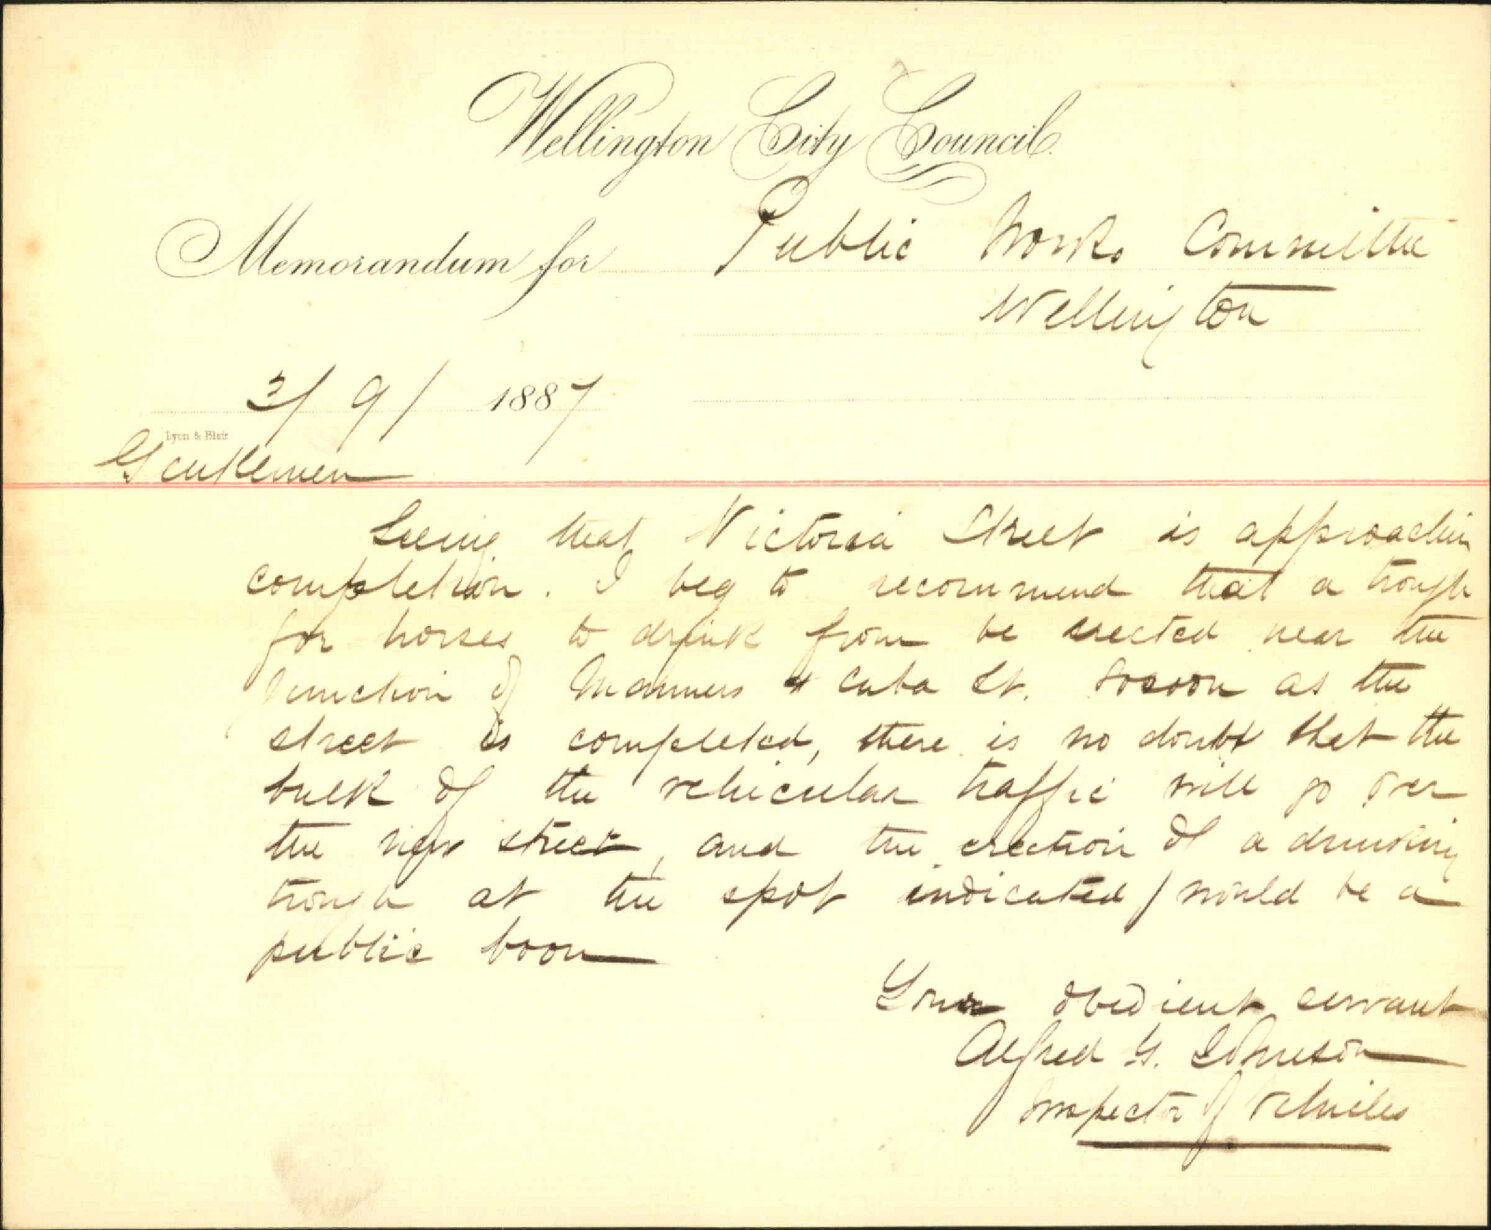 Wellington City Council.
Memorandum for Public Works Committee
Wellington
3/9/1887
Lyon & Blair
Gentlemen
Seeing that Victoria Street is approachin
completion. I beg to recommend that a trough
for horses to drink from be erected near the
junction of Manners & Cuba St. So soon as the
street is completed, there is no doubt that the
bulk of the vehicular traffic will go over
the new street, and the erection of a drinking
trough at the spot indicated would be a
public boon
Your obedient servant
Alfred G. Johnson
Inspector of Vehicles